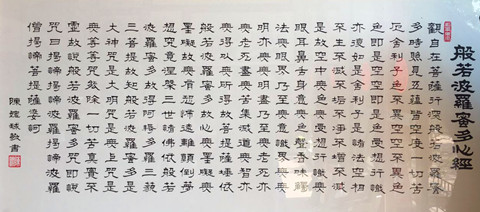 般若波羅蜜多心經
觀自在菩薩行深般若波羅蜜
多時照見五蘊皆空度一切苦
厄舍利子色不異空空不異色
色即是空空即是色受想行識
亦復如是舍利子是諸法空相
不生不滅不垢不淨不增不減
是故空中無色無受想行識無
眼耳鼻舌身意無色聲香味觸
法無眼界乃至無意識界無無
明亦無無明盡乃至無老死亦
無老死盡無苦集滅道無智亦
無得以無所得故菩提薩埵依
般若波羅蜜多故心無罣礙無
罣礙故無有恐怖遠離顛倒夢
想究竟涅槃三世諸佛依般若
波羅蜜多故得阿耨多羅三藐
三菩提故知般若波羅蜜多是
大神咒是大明咒是無上咒是
無等等咒能除一切苦真實不
虛故說般若波羅蜜多咒即說
咒曰揭諦揭諦波羅揭諦波羅
僧揭諦菩提薩婆訶
陳書